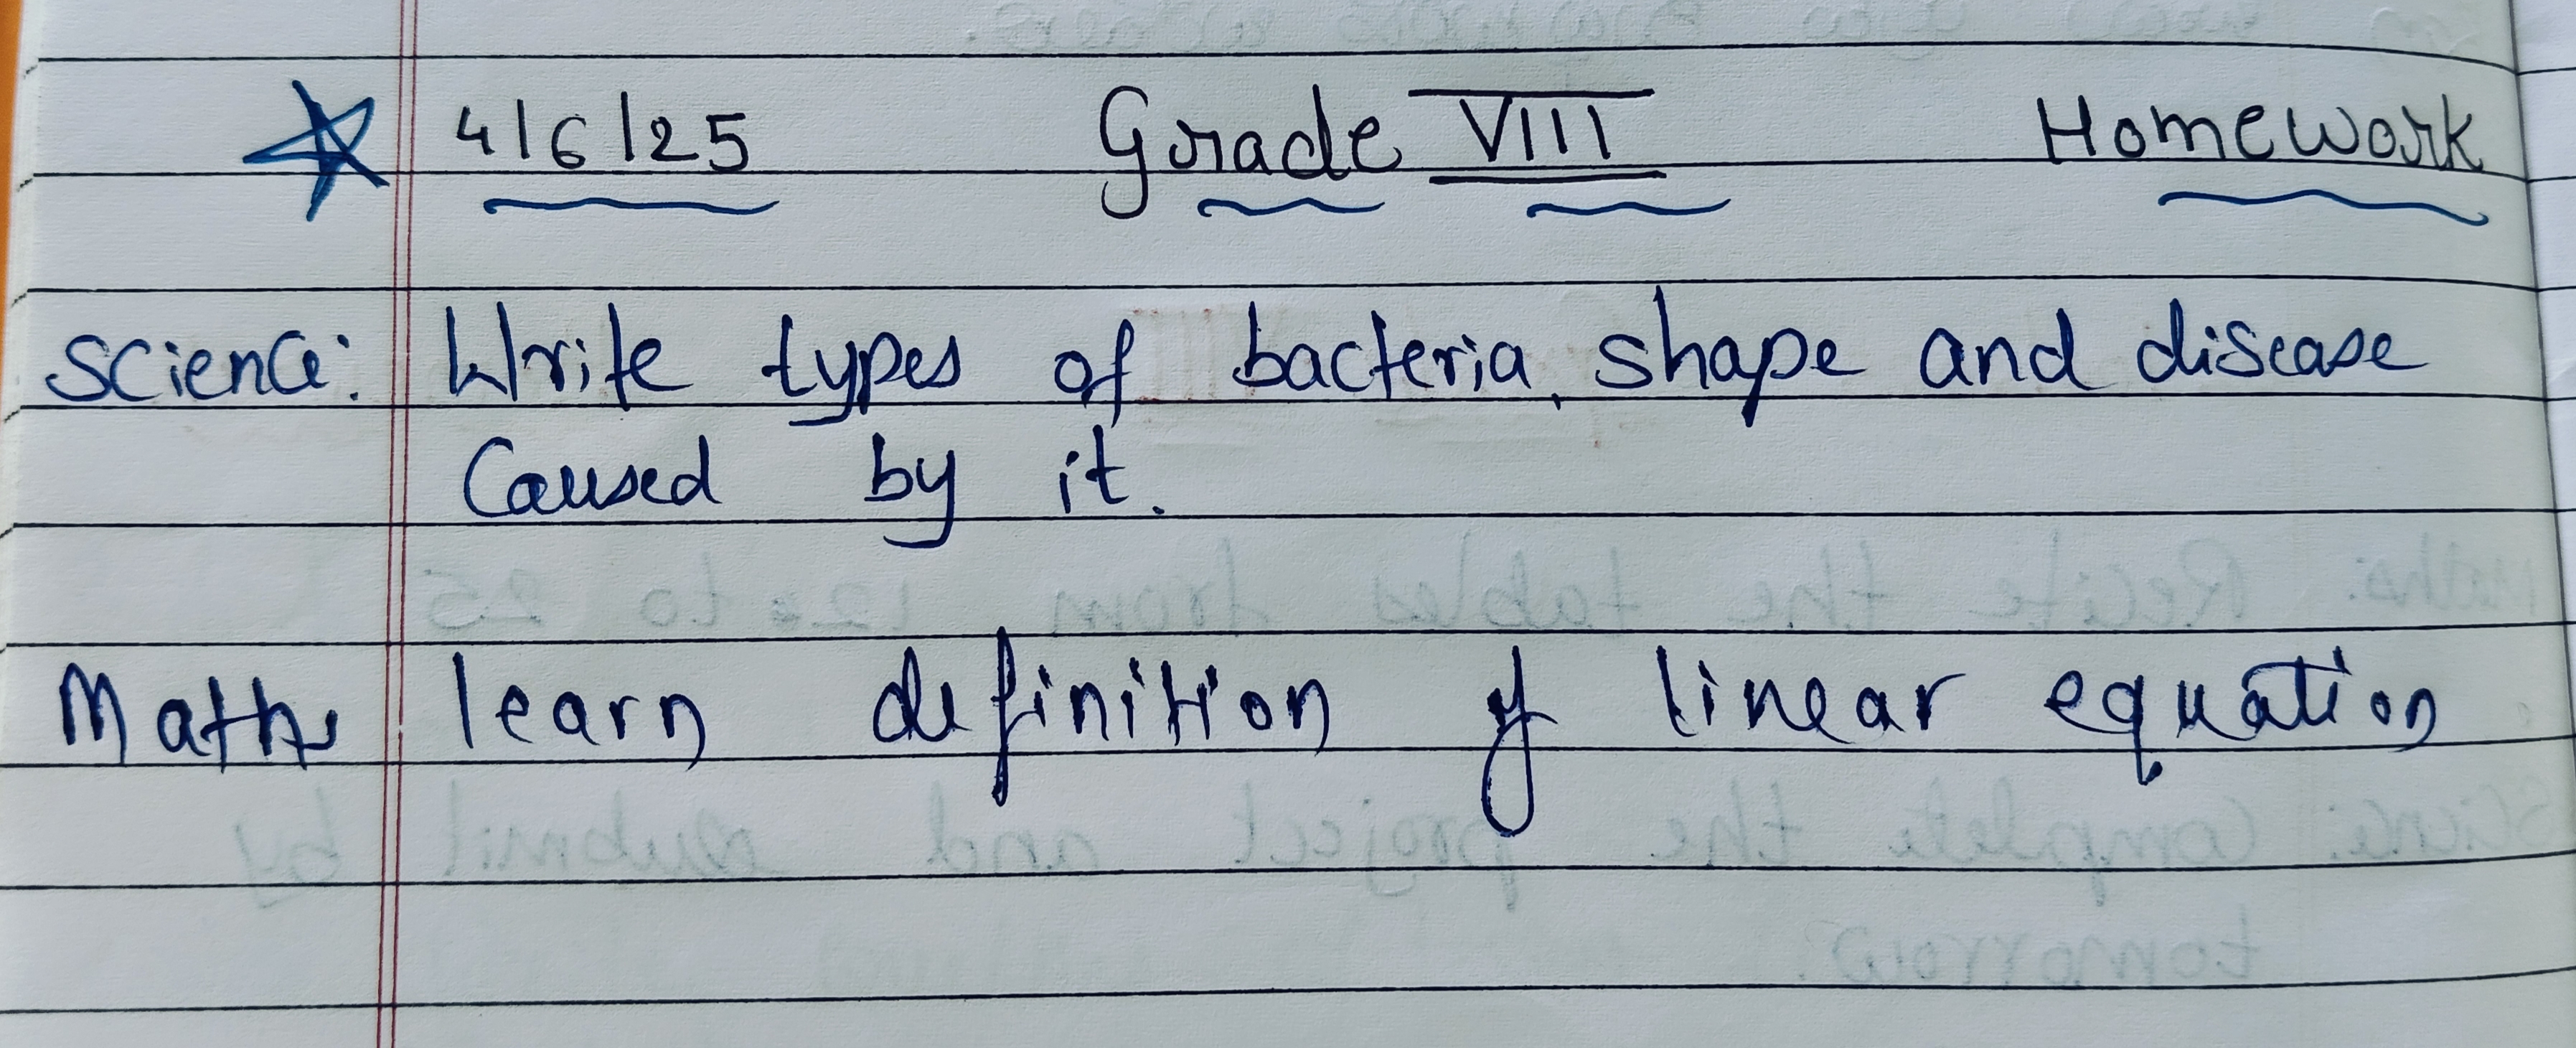 4/6/25 Grade VIII Homework
Science: Write types of bacteria, shape and disease
Caused by it.
Maths learn definition of linear equation